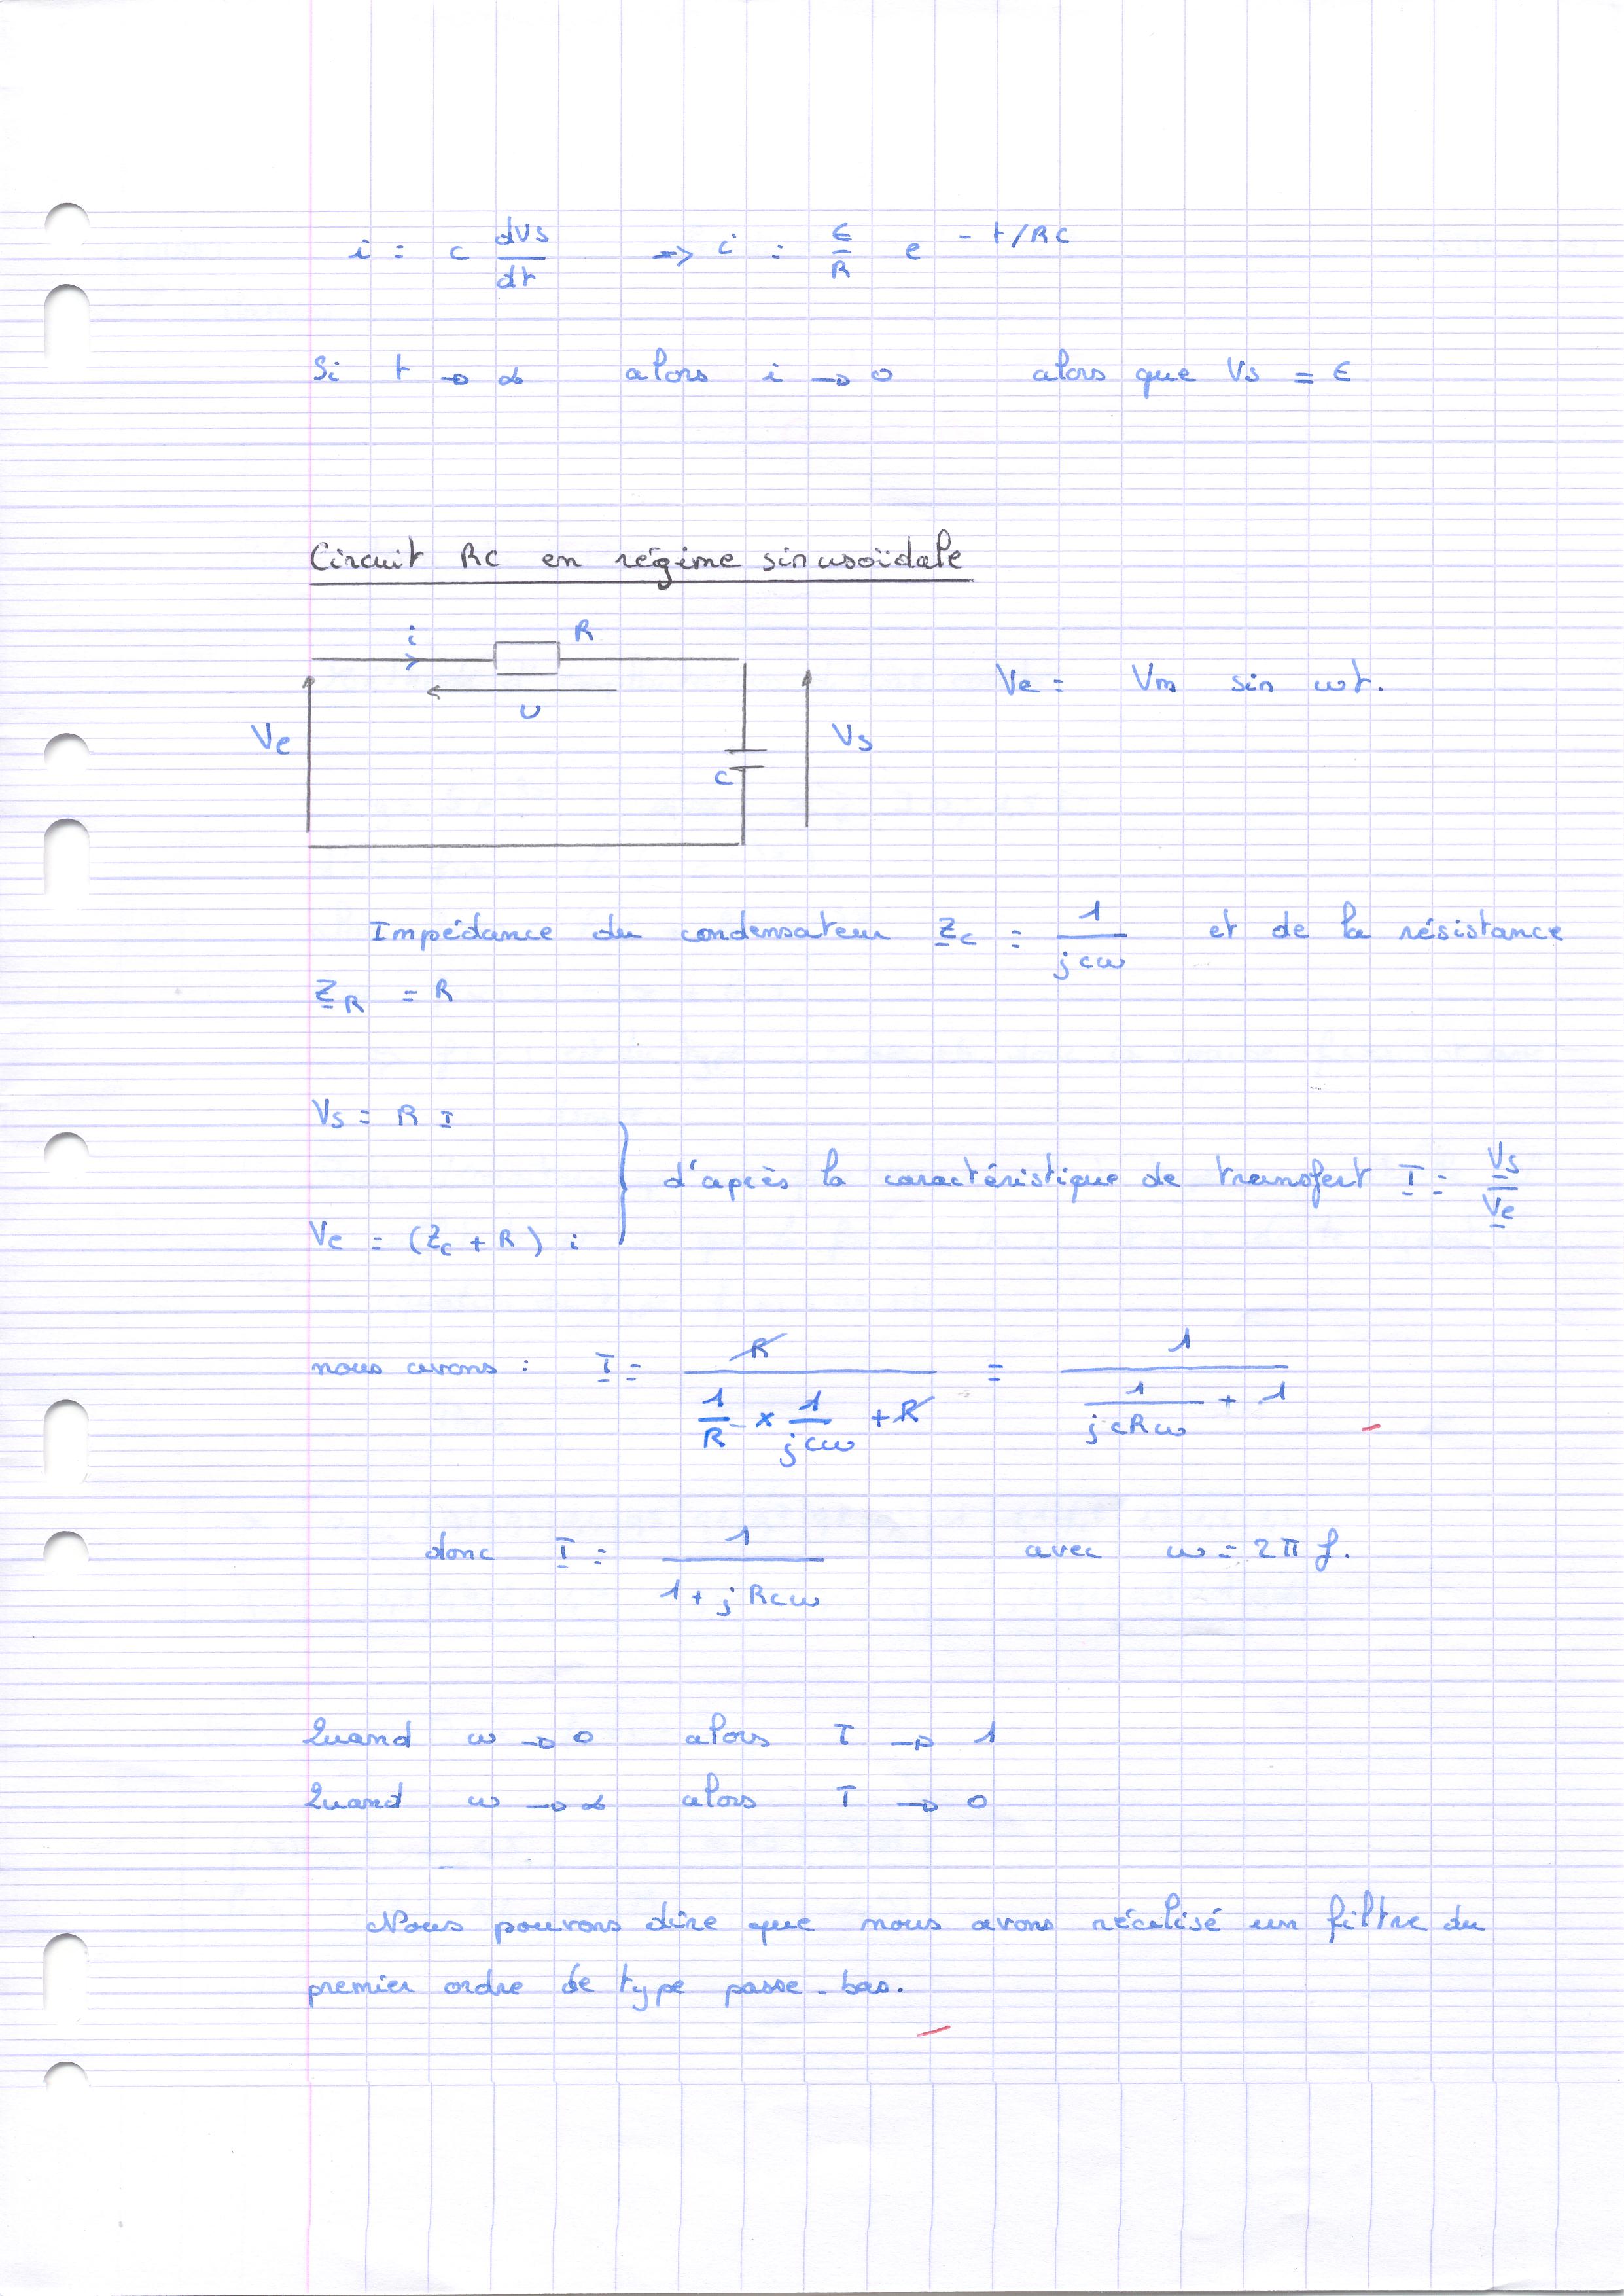 i = c dVs/dt => i = ϵ/R e^-t/RC
Si t → ∞ alors i → 0 alors que Vs = ϵ
Circuit RC en régime sinusoïdale
i R
Ve = Vm sin ωt.
U
Ve Vs
C
Impédance du condensateur Z_c = 1/jcω et de la résistance
Z_R = R
Vs = R I
d'après la caractéristique de transfert T = Vs/Ve
Ve = (Zc + R) i
nous avons : T = R / (1/R × 1/jcω + R) = 1 / (1/jcRω + 1)
donc T = 1 / (1 + jRcω) avec ω = 2π f.
Quand ω → 0 alors T → 1
Quand ω → ∞ alors T → 0
Nous pouvons dire que nous avons réalisé un filtre du
premier ordre de type passe-bas.